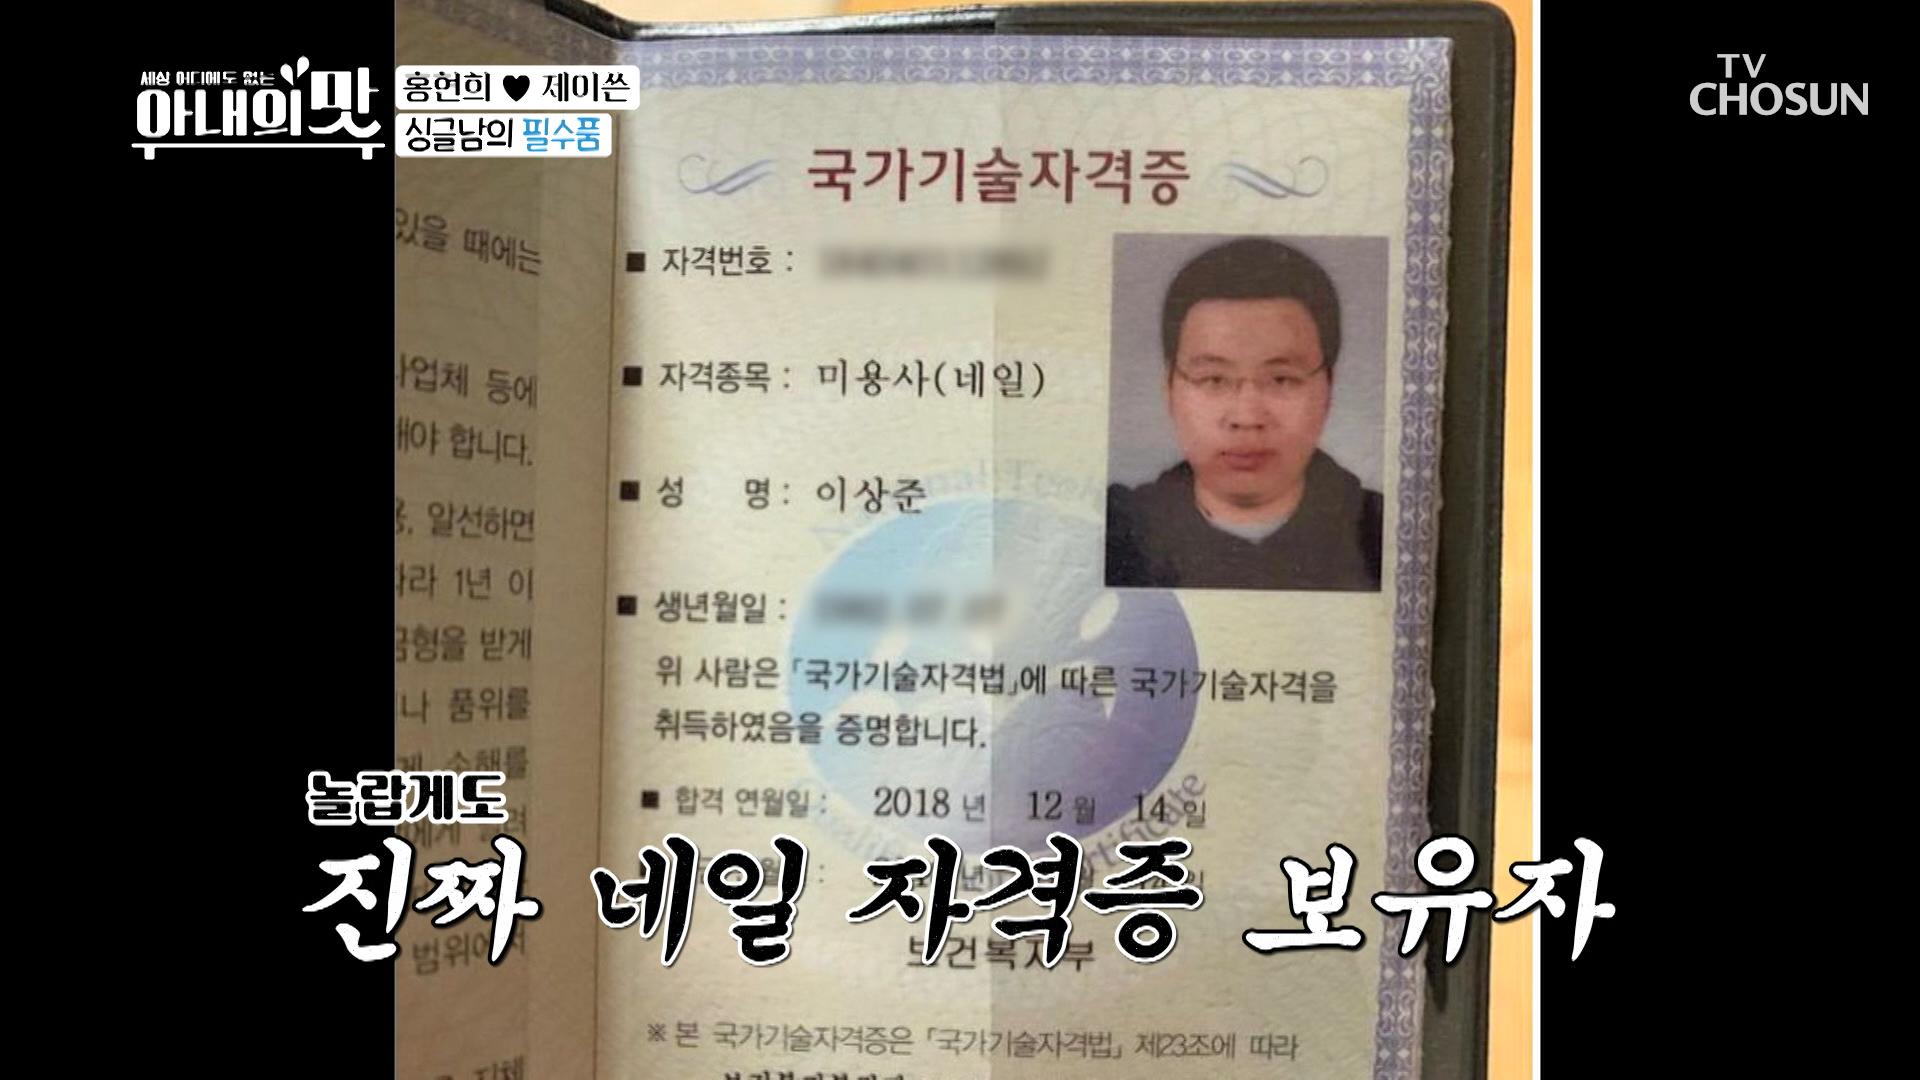 세상 어디에도 없는
아내의 맛
홍현희 ♥ 제이쓴
싱글남의 필수품
TV
CHOSUN
있을 때에는
사업체 등에
해야 합니다.
알선하면
따라 1년 이
금형을 받게
품위를
손해를
국가기술자격증
■ 자격번호 :
■ 자격종목 : 미용사(네일)
■ 성 명 : 이상준
■ 생년월일 :
위 사람은 「국가기술자격법」에 따른 국가기술자격을
취득하였음을 증명합니다.
■ 합격 연월일 : 2018 년 12 월 14 일
보건복지부
※ 본 국가기술자격증은 「국가기술자격법」 제23조에 따라
놀랍게도
진짜 네일 자격증 보유자